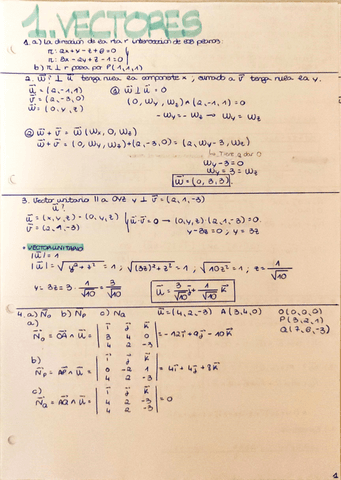 1. VECTORES
1. a) La dirección de la recta r intersección de los planos
π: 2x+y-z+8=0
π: 3x-2y+z-1=0
b) π ⊥ r pasa por P(1,1,1)
2. w? ⊥ u tenga nula la componente x, sumado a v tenga nula la y.
u = (2,-1,1)
v = (2,-3,0)
w = (0,y,z)
① w ⊥ u = 0
(0, wy, wz) · (2,-1,1) = 0
-wy + wz = 0 → wy = wz
② w + v = w (wx, 0, wz)
w + v = (0, wy, wz) + (2,-3,0) = (2, wy-3, wz)
↳ Tiene q dar 0
wy - 3 = 0
wy = 3 = wz
w = (0, 3, 3)
3. Vector unitario || a OYZ y ⊥ v = (2,1,-3)
u?
u = (x,y,z) = (0,y,z)
v = (2,1,-3)
u · v = 0 → (0,y,z) · (2,1,-3) = 0
y - 3z = 0 ; y = 3z
• VECTOR UNITARIO
|u| = 1
|u| = √y²+z² = 1 ; √(3z)²+z² = 1 ; √10z² = 1 ; z = 1/√10
y = 3z = 3 · 1/√10 = 3/√10
u = 3/√10 j + 1/√10 k
4. a) No b) Np c) NQ u = (4,2,-3) A(3,4,0) O(0,0,0)
P(3,2,1)
Q(7,6,-3)
a)
No = OA ∧ u = | i j k | = -12i + 9j - 10k
| 3 4 0 |
| 4 2 -3 |
b)
Np = AP ∧ u = | i j k | = 4i + 4j + 8k
| 0 -2 1 |
| 4 2 -3 |
c)
NQ = AQ ∧ u = | i j k | = 0
| 4 2 -3 |
| 4 2 -3 |
1